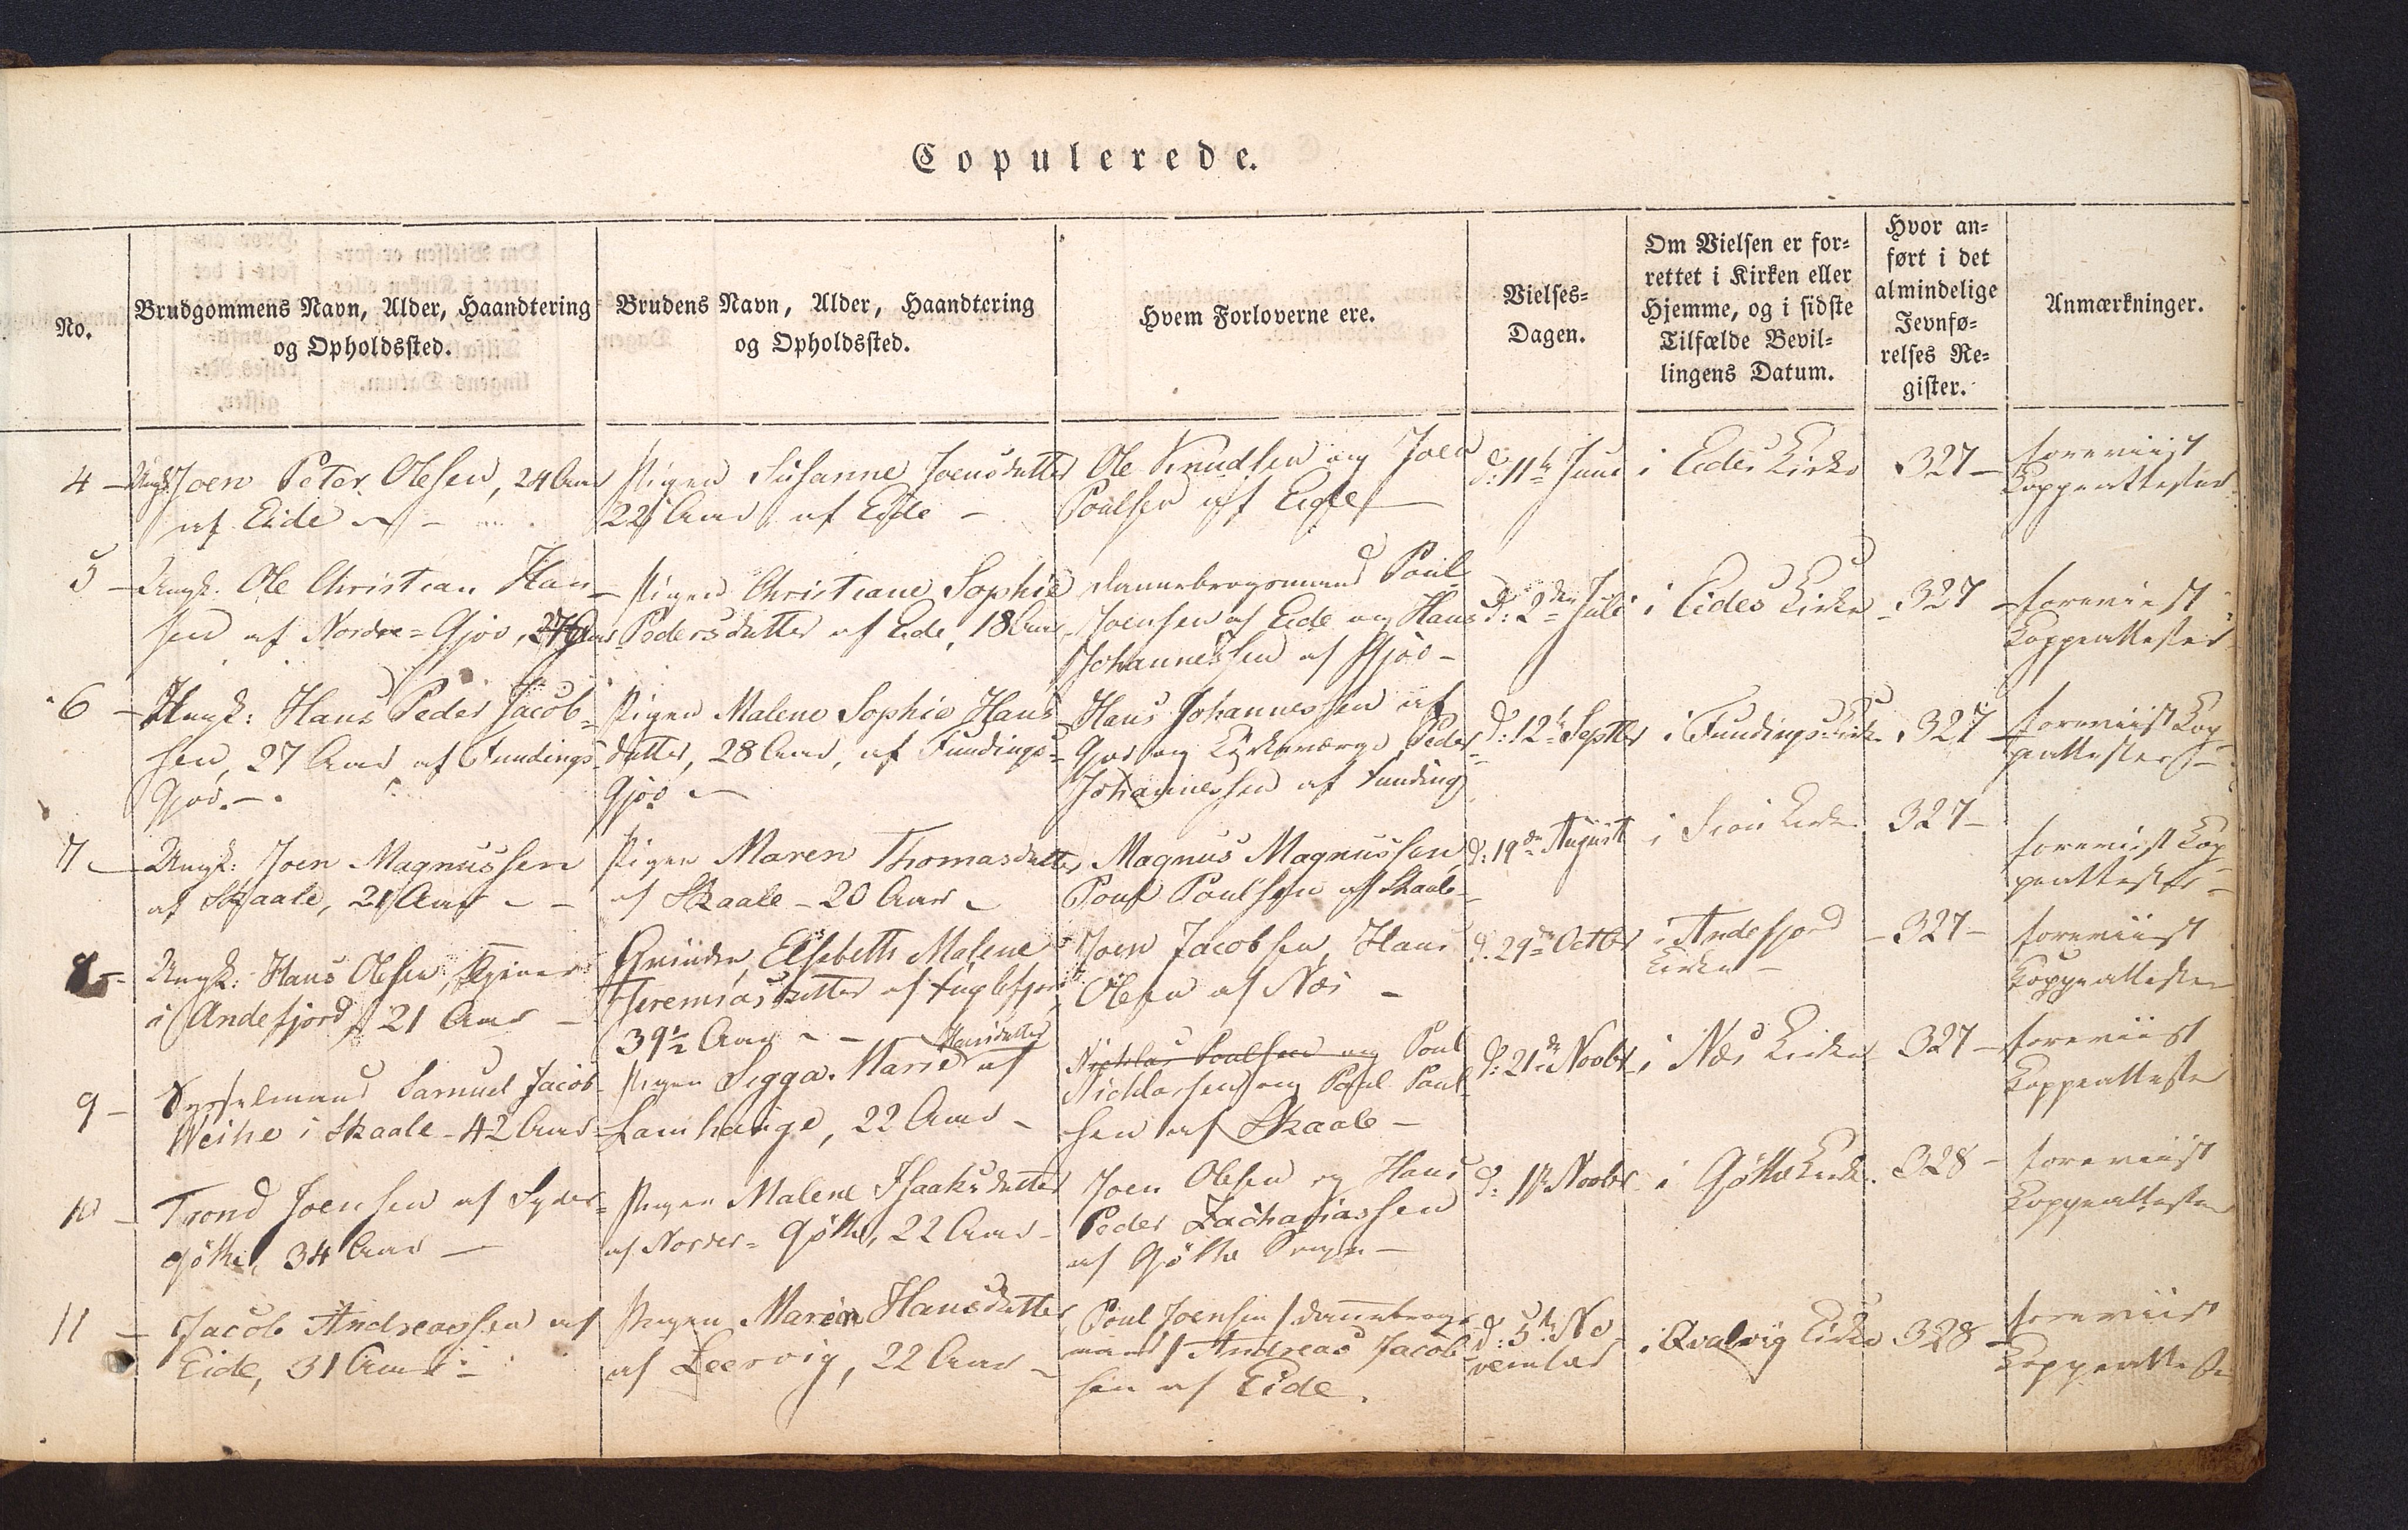 Copulerede.
No.
Brudgommens Navn, Alder, Haandtering
og Opholdssted.
Brudens Navn, Alder, Haandtering
og Opholdssted.
Hvem Forloverne ere.
Vielses-
Dagen.
Om Vielsen er for-
rettet i Kirken eller
Hjemme, og i sidste
Tilfælde Bevil-
lingens Datum.
Hvor an-
ført i det
almindelige
Jevnfø-
relses Re-
gister.
Anmærkninger.
4 - Ungk. Joen Peter Olesen, 24 Aar
af Eide
Pigen Susanne Joensdatter
22 Aar, af Eide -
Ole Knudsen og Joen
Poulsen af Eide
d: 11te Juni
i Eides Kirke
327 -
foreviist
Koppeattester
5 - Ungk. Ole Christian Han-
sen af Nordre-Gjov, Aar
Pigen Christiane Sophie
Pedersdatter af Eide, 18 Aar
Dannebrogsmand Poul
Joensen af Eide og Hans
Johannessen af Gjov -
d: 2den Juli
i Eides Kirke
327 -
foreviist
Koppeattester
6 - Ungk: Hans Peder Jacob-
sen, 27 Aar af Fundings-
Gjov. -
Pigen Malene Sophie Hans-
datter, 28 Aar, af Fundings-
Gjov -
Hans Johannessen af
Gjov og Kirkeværge Peder
Johannessen af Funding
d: 12te Septbr
i Fundings Kirke
327 -
foreviist Kop-
peattester -
7 - Ungk: Joen Magnussen
af Skaale, 21 Aar - -
Pigen Maren Thomasdatter
af Skaale - 20 Aar -
Magnus Magnussen,
Poul Poulsen af Skaale -
d: 19de August
i Kirke
327 -
foreviist Kop-
peattester -
8 - Ungk: Hans Olesen, tjener
i Andefjord, 21 Aar -
Qvinden Elsebeth Malene
Jeremiasdatter af Fuglefjord
39½ Aar - -
Joen Jacobsen, Hans
Olesen af Næs -
d. 29de Octbr
i Andefjord
Kirke -
- 327 -
foreviist
Koppeattester
9 - Sysselmand Samuel Jacob
Weihe i Skaale - 42 Aar -
Pigen Sigga Marie Hansdatter af
Lamhauge, 22 Aar -
Nicklas Poulsen og Poul
Nicklassen og Poul Poul-
sen af Skaale -
d: 21de Novbr
i Næs Kirke
327 -
foreviist
Koppeatteste
10 - Trond Joensen af Syder-
Gøthe, 34 Aar -
Pigen Malene Isaksdatter
af Norder-Gøthe, 22 Aar -
Joen Olesen og Hans
Peder Zachariassen
af Gøthe
d: Novbr
i Gøthe Kirke.
328 -
foreviist
Koppeatteste
11 - Jacob Andreassen af
Eide, 31 Aar -
Pigen Maren Hansdatter
af Leervig, 22 Aar -
Poul Joensen / Dannebrogs-
mand / Andreas Jacob-
sen af Eide.
d: 5te No-
vember
i Qvalvig Kirke
328 -
foreviist
Koppeatteste